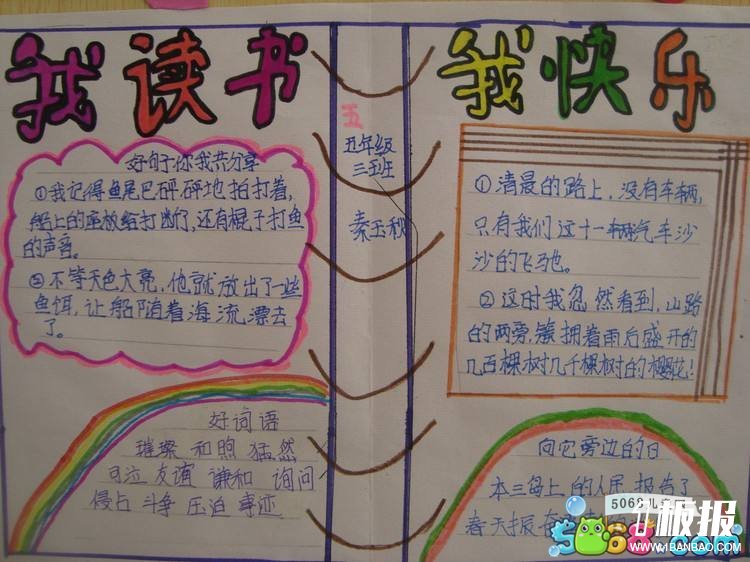 我读书
好句子你我共分享
①我记得鱼尾巴砰砰地拍打着,
船上的座板给打断了,还有棍子打鱼
的声音。
②不等天色大亮,他就放出了一些
鱼饵,让船随着海流漂去
了。
好词语
璀璨 和煦 猛然
可泣 友谊 谦和 询问
侵占 斗争 压迫 事迹
五
五年级
三班
秦玉秋
我快乐
①清晨的路上,没有车辆,
只有我们这十一辆汽车沙
沙的飞驰。
②这时我忽然看到,山路
的两旁,簇拥着雨后盛开的
几百棵树几千棵树的樱花!
向它旁边的日
本三岛上的人民报告了
春天
5068儿童网
板报
5068.com
WWW.1BANBAO.COM